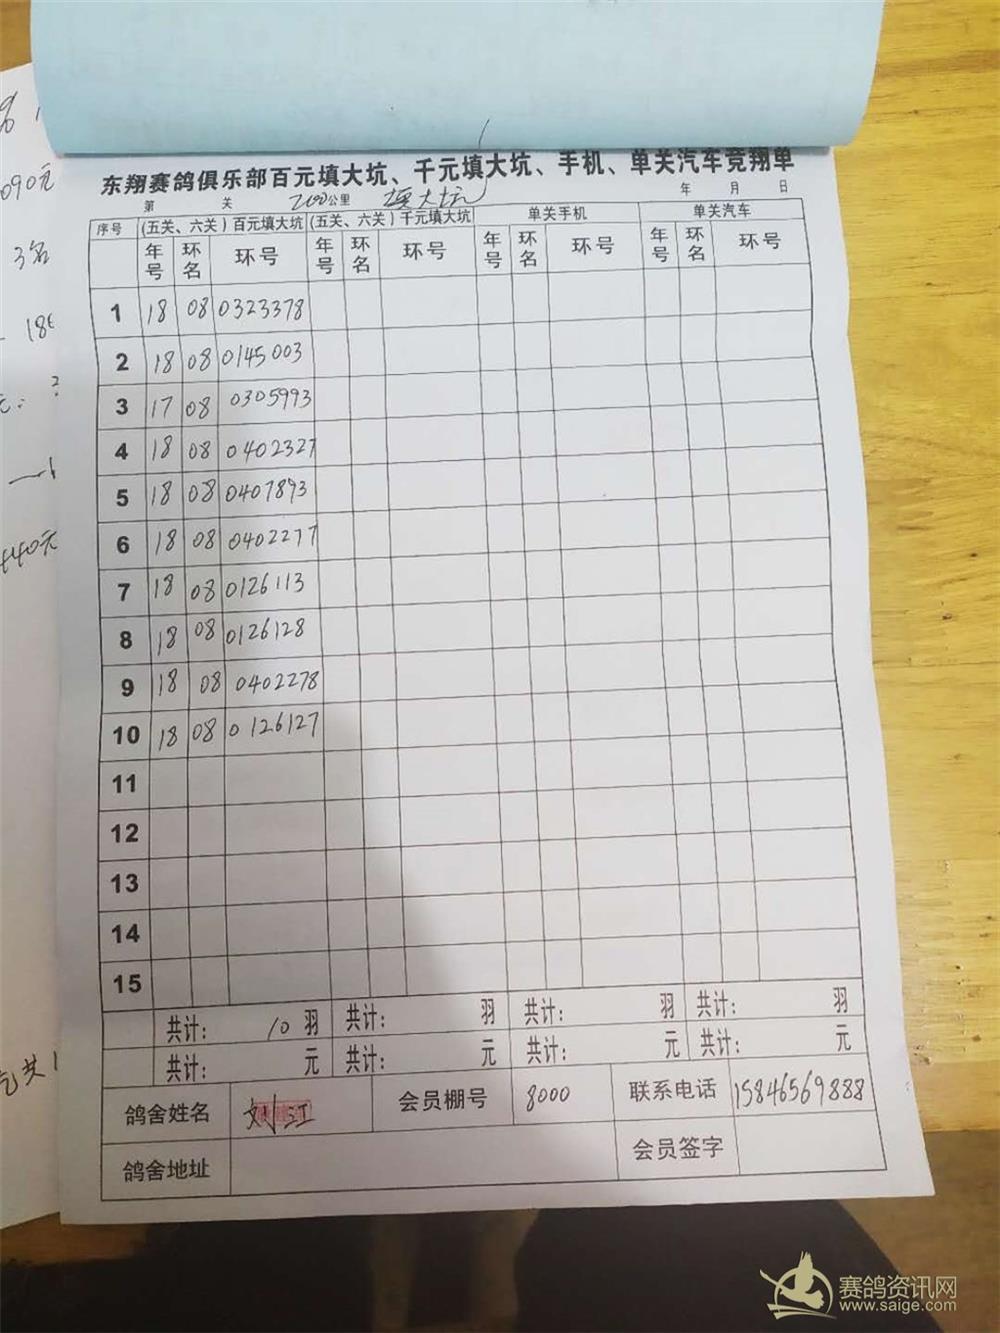 东翔赛鸽俱乐部百元填大坑、千元填大坑、手机、单关汽车竞翔单
第 关 200公里 填大坑 年 月 日
序号 (五关、六关)百元填大坑 (五关、六关)千元填大坑 单关手机 单关汽车
年号 环名 环号 年号 环名 环号 年号 环名 环号 年号 环名 环号
1 18 08 0323378
2 18 08 0145003
3 17 08 0305993
4 18 08 0402327
5 18 08 0407893
6 18 08 0402277
7 18 08 0126113
8 18 08 0126128
9 18 08 0402278
10 18 08 0126127
11
12
13
14
15
共计: 10 羽 共计: 羽 共计: 羽 共计: 羽
共计: 元 共计: 元 共计: 元 共计: 元
鸽舍姓名 刘江 会员棚号 8000 联系电话 15846569888
鸽舍地址 会员签字
090元
3名
440元
赛鸽资讯网
www.saige.com